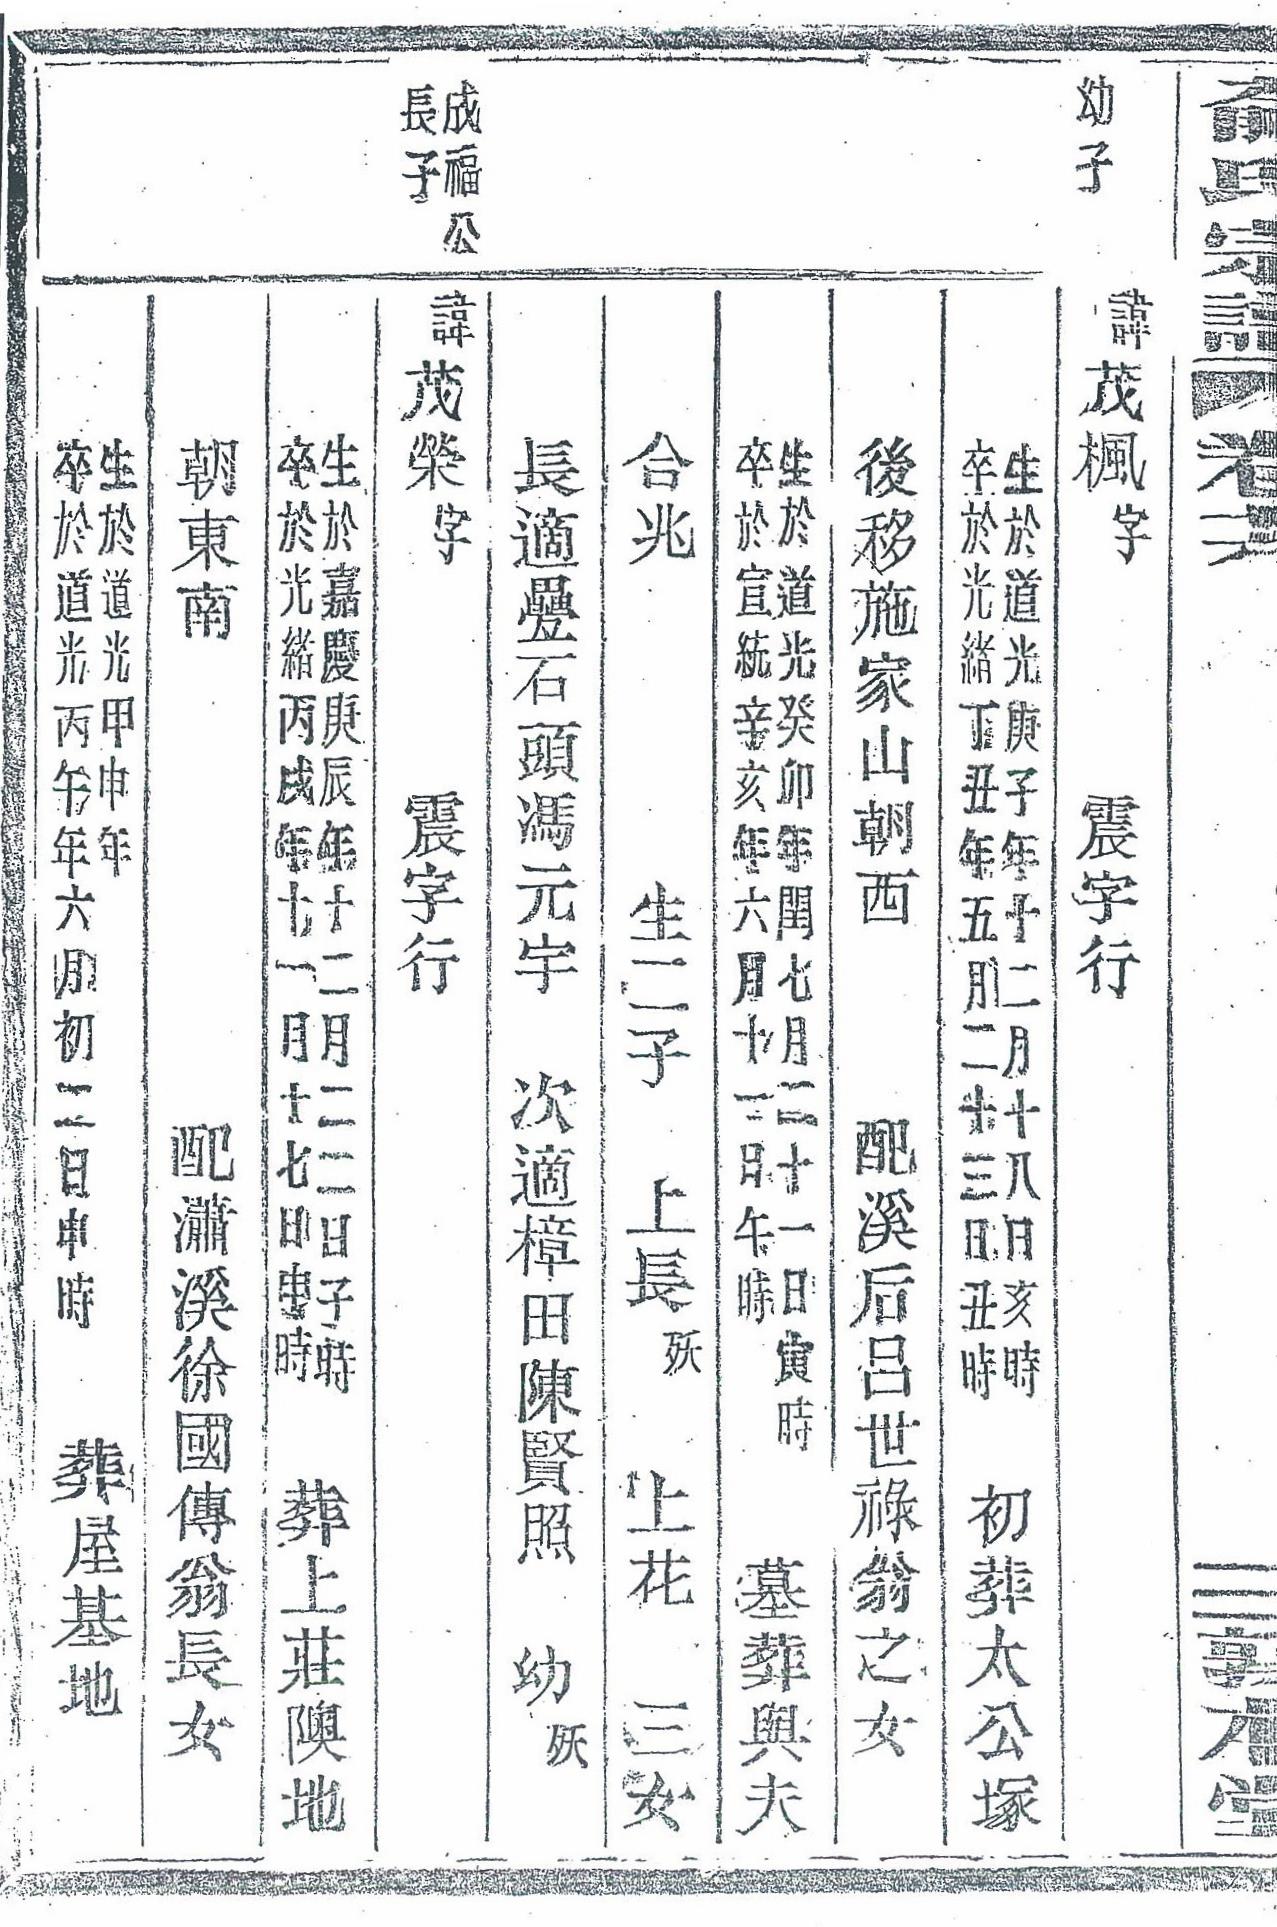 俞氏宗譜 卷六 敦本堂
幼子
諱茂楓字 震字行
生於道光庚子年十二月十八日亥時
卒於光緒丁丑年五月二十三日丑時
初葬太公塚
後移施家山朝西 配溪后呂世祿翁之女
生於道光癸卯年閏七月二十一日寅時
卒於宣統辛亥年六月十二日午時
墓葬與夫
合兆 生二子 上長殀 上花 三女
長適疊石頭馮元宇 次適樟田陳賢照 幼殀
成福公
長子
諱茂榮字 震字行
生於嘉慶庚辰年十二月二十二日子時
卒於光緒丙戌年十一月十七日申時
葬上莊隩地
朝東南 配瀟溪徐國傳翁長女
生於道光甲申年
卒於道光丙午年六月初二日申時
葬屋基地